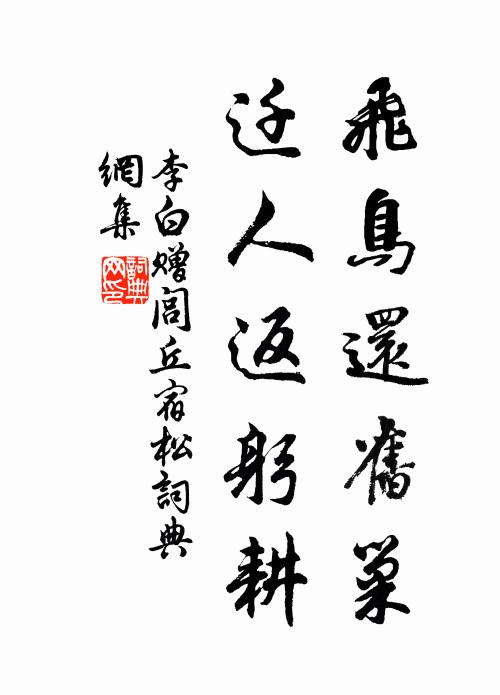 飛鳥還舊巢
迁人返躬耕
李白贈閭丘宿松詞典
網集
詞典
网印